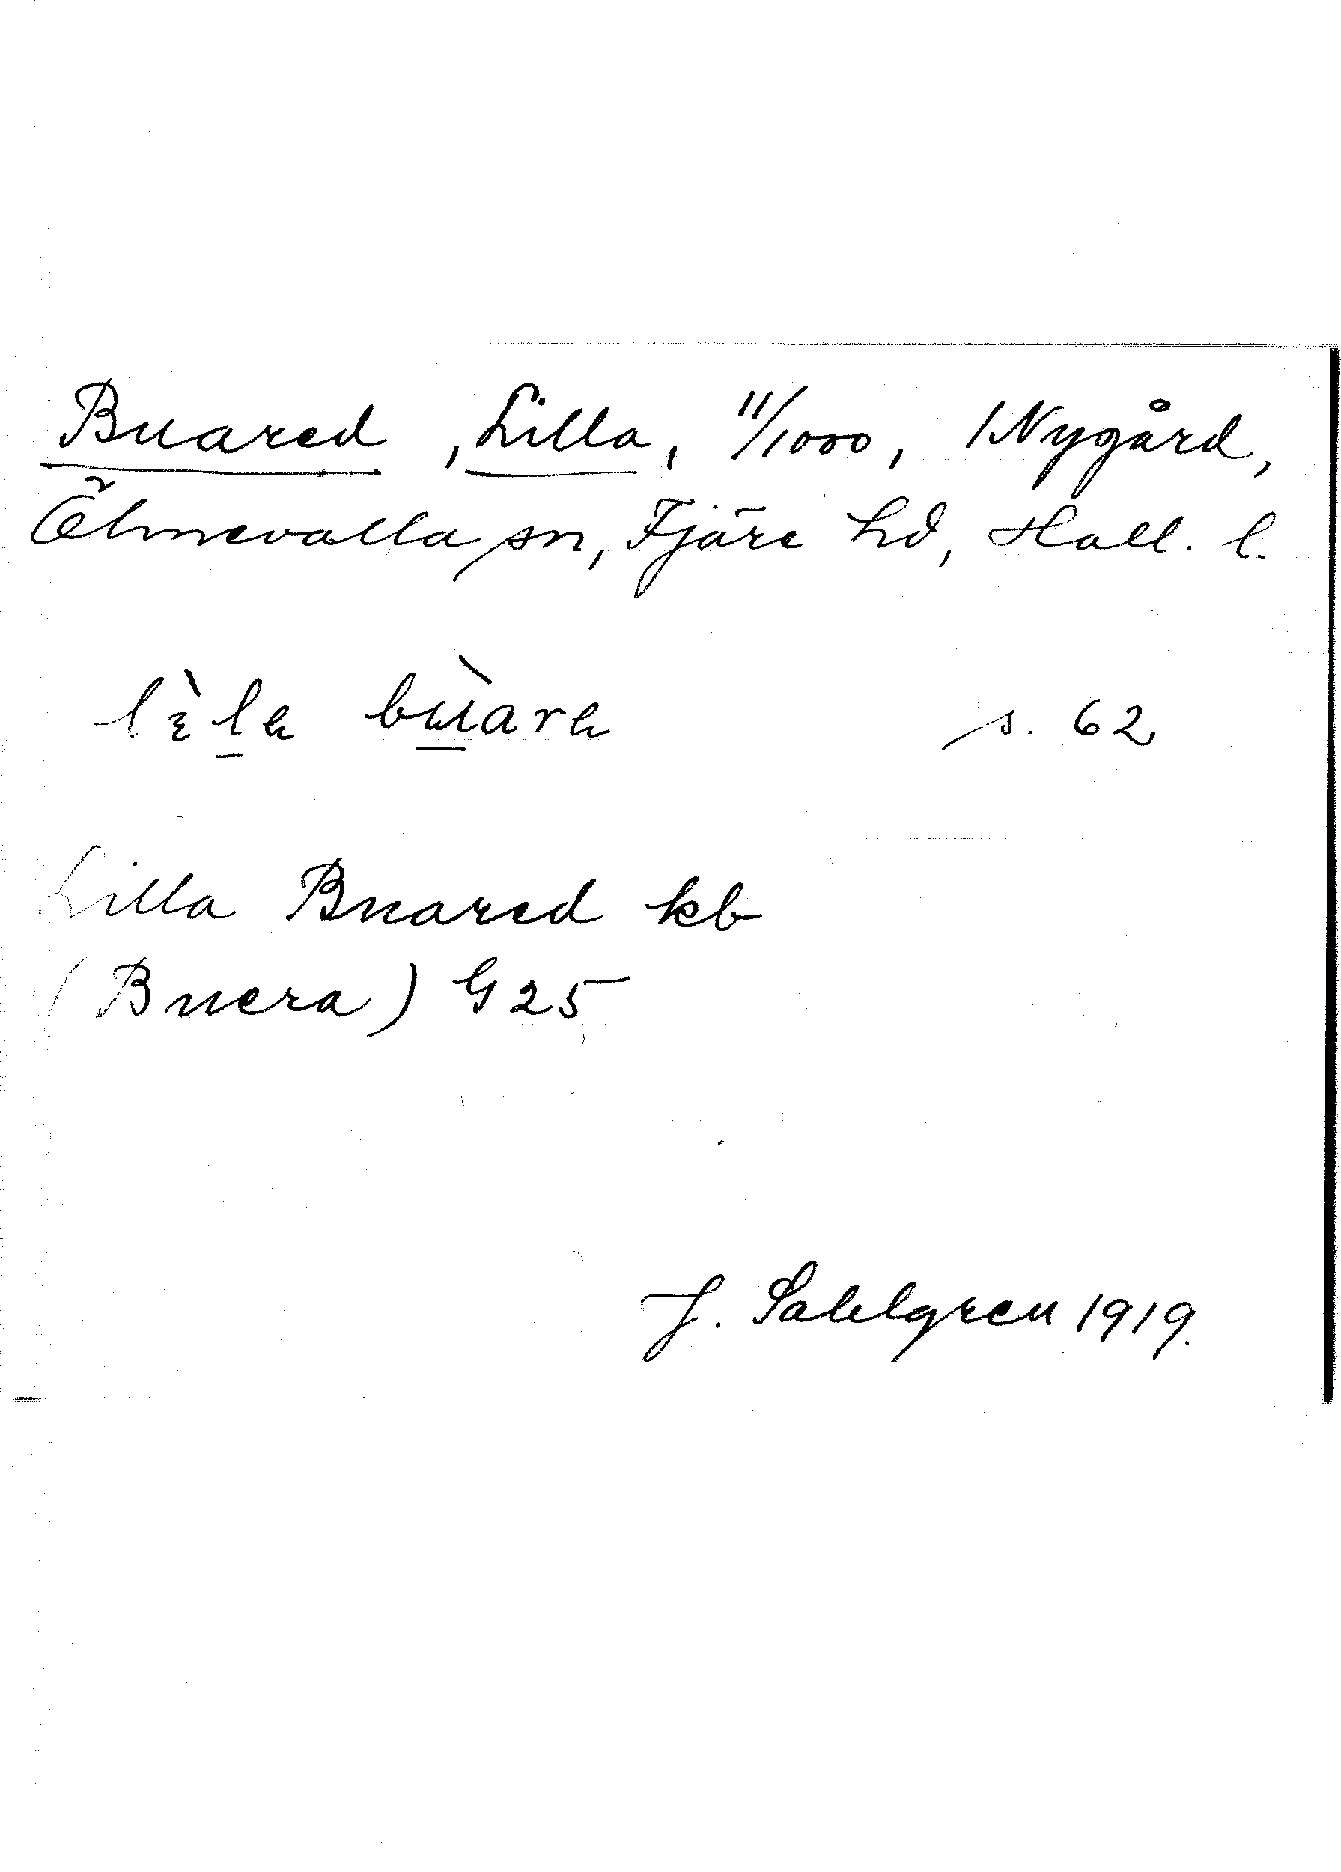 Buared, Lilla, 11/1000, 1 Nygård,
Ölmevalla sn, Fjäre hd, Hall. l.
s. 62
Lilla Buared kb
(Buera) G 25
J. Sahlgren 1919.